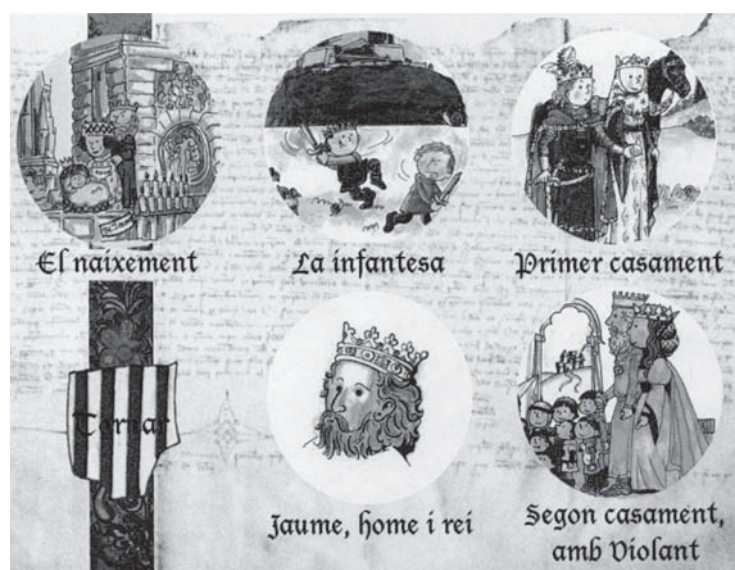 El naixement
La infantesa
Primer casament
Tornar
Jaume, home i rei
Segon casament,
amb Violant